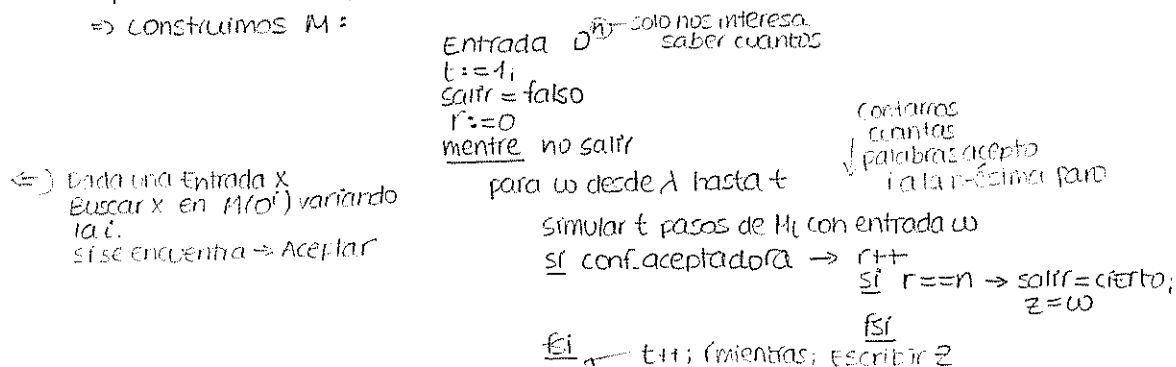 => construimos M :
Entrada 0^n - solo nos interesa
saber cuantos
t := 1;
salir = falso
r := 0
mentre no salir
para ω desde λ hasta t
contamos
cuantas
palabras acepto
i a la n-ésima paro
simular t pasos de ML con entrada ω
sí conf. aceptadora → r++
sí r==n → salir = cierto;
z = ω
fsí
fsi t++; fmientras; Escribir z
<=) Dada una Entrada X
Buscar x en M(0^i) variando
la i.
si se encuentra → Aceptar